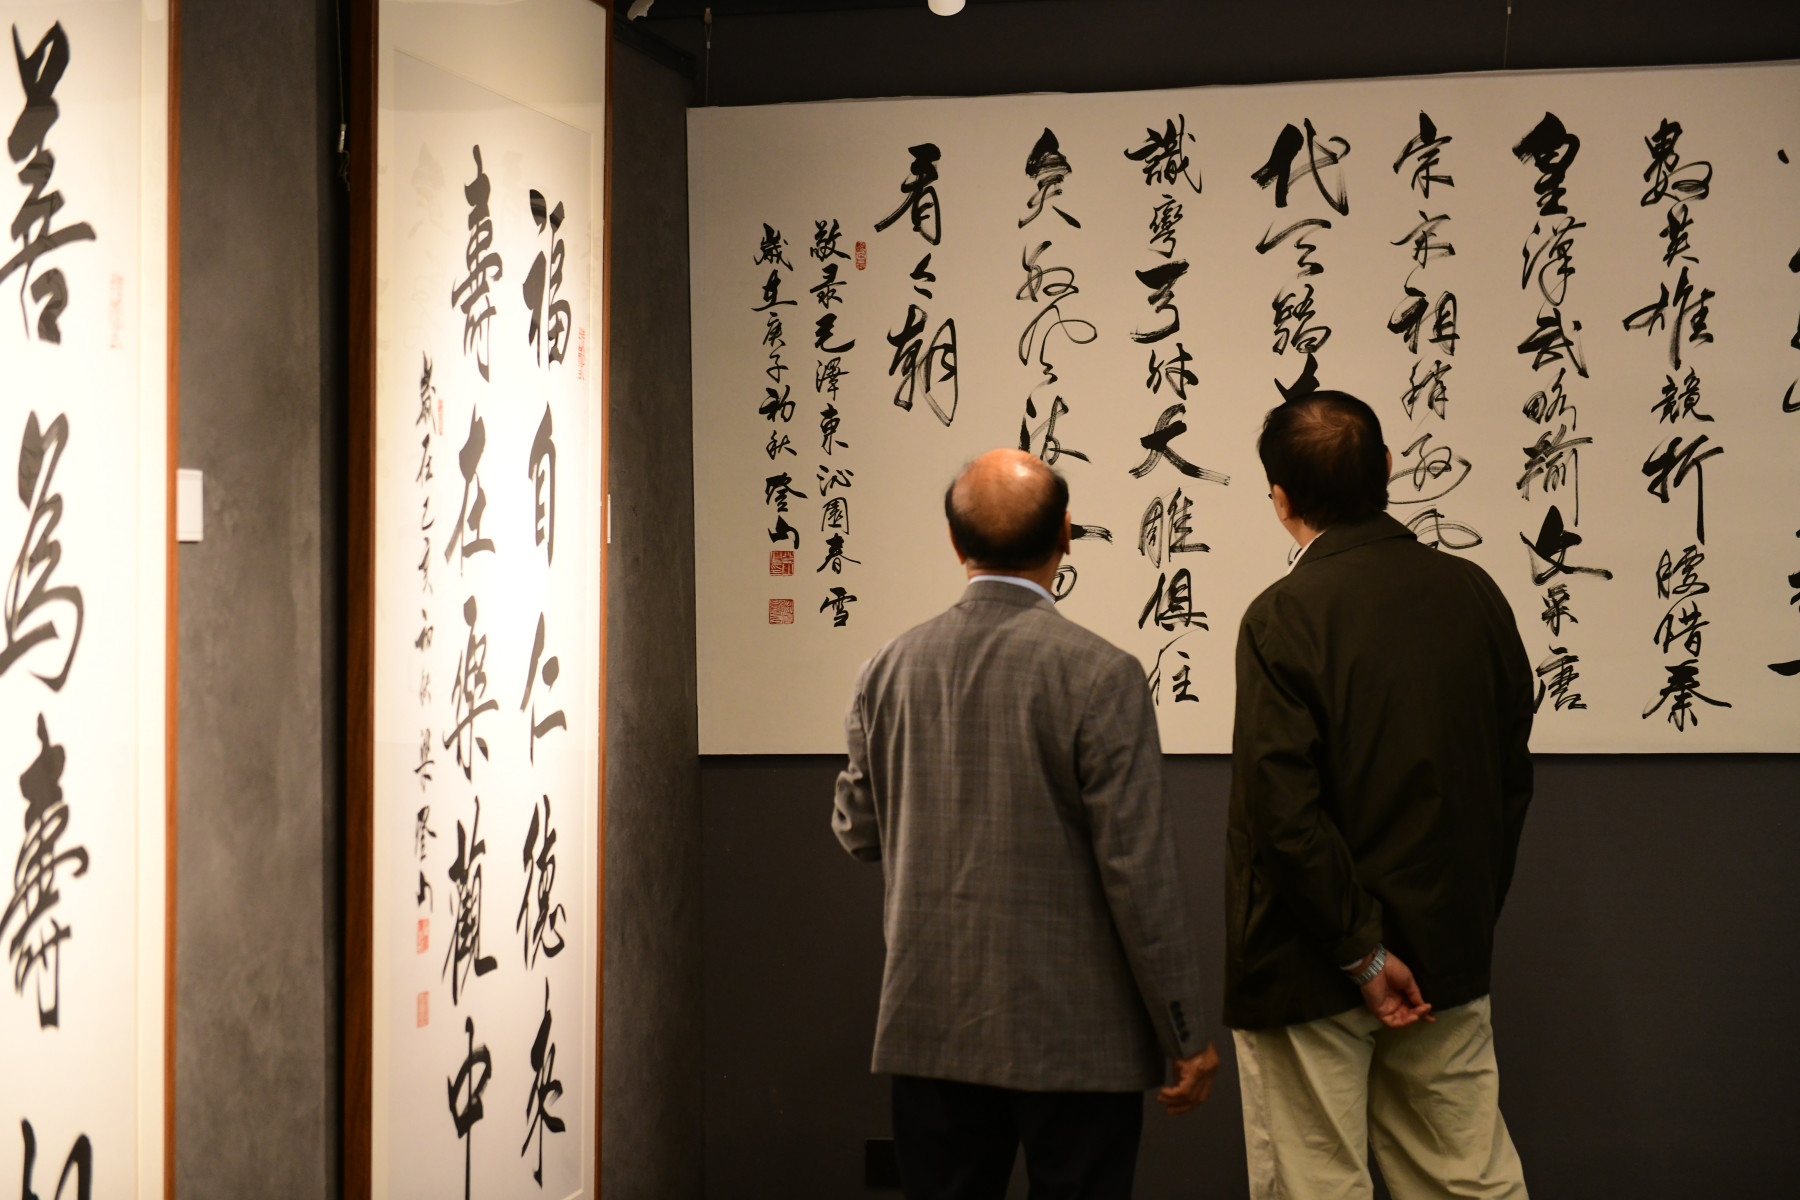 數英雄競折腰惜秦
皇漢武略輸文采唐
宗宋祖稍遜風
代天驕
識彎弓射大雕俱往
矣數風流
看今朝
敬录毛澤東沁園春雪
歲在庚子初秋登山
福自仁德來
壽在樂觀中
歲在己亥初秋 登山
善為壽